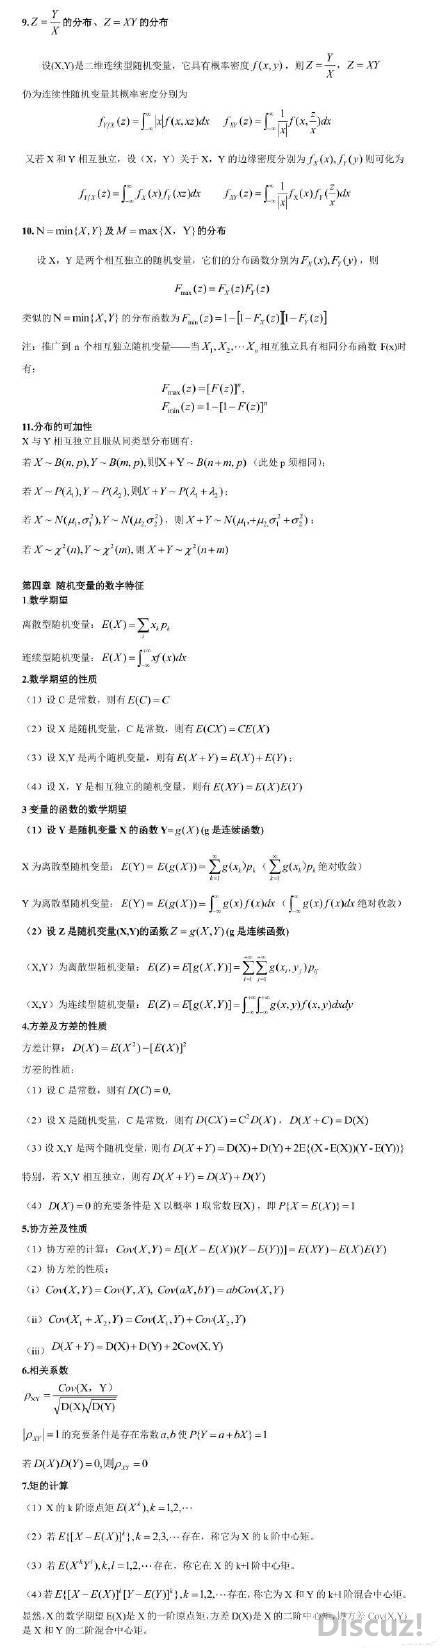 9.Z = Y/X 的分布、Z = XY 的分布
设(X,Y)是二维连续型随机变量，它具有概率密度 f(x, y)，则 Z = Y/X，Z = XY
仍为连续性随机变量其概率密度分别为
f_{Y/X}(z) = ∫_{-∞}^{∞} |x| f(x, xz)dx  f_{XY}(z) = ∫_{-∞}^{∞} 1/|x| f(x, z/x)dx
又若 X 和 Y 相互独立，设（X，Y）关于 X，Y 的边缘密度分别为 f_X(x), f_Y(y) 则可化为
f_{Y/X}(z) = ∫_{-∞}^{∞} f_X(x) f_Y(xz)dx  f_{XY}(z) = ∫_{-∞}^{∞} 1/|x| f_X(x) f_Y(z/x)dx
10. N = min{X, Y} 及 M = max{X，Y} 的分布
设 X，Y 是两个相互独立的随机变量，它们的分布函数分别为 F_X(x), F_Y(y)，则
F_max(z) = F_X(z)F_Y(z)
类似的 N = min{X, Y} 的分布函数为 F_min(z) = 1−[1−F_X(z)][1−F_Y(z)]
注：推广到 n 个相互独立随机变量——当 X_1, X_2, ⋯ X_n 相互独立具有相同分布函数 F(x)时
有：
F_max(z) = [F(z)]^n,
F_min(z) = 1−[1−F(z)]^n
11.分布的可加性
X 与 Y 相互独立且服从同类型分布则有：
若 X ~ B(n, p), Y ~ B(m, p), 则X + Y ~ B(n + m, p)（此处 p 须相同）；
若 X ~ P(λ_1), Y ~ P(λ_2), 则X + Y ~ P(λ_1 + λ_2)；
若 X ~ N(μ_1, σ_1^2), Y ~ N(μ_2, σ_2^2)，则 X + Y ~ N(μ_1, +μ_2, σ_1^2 + σ_2^2)；
若 X ~ χ^2(n), Y ~ χ^2(m), 则 X + Y ~ χ^2(n + m)
第四章 随机变量的数字特征
1.数学期望
离散型随机变量：E(X) = ∑_i x_i p_i
连续型随机变量：E(X) = ∫_{-∞}^{+∞} xf(x)dx
2.数学期望的性质
（1）设 C 是常数，则有 E(C) = C
（2）设 X 是随机变量，C 是常数，则有 E(CX) = CE(X)
（3）设 X,Y 是两个随机变量，则有 E(X + Y) = E(X) + E(Y)；
（4）设 X，Y 是相互独立的随机变量，则有 E(XY) = E(X)E(Y)
3 变量的函数的数学期望
（1）设 Y 是随机变量 X 的函数 Y= g(X) (g 是连续函数)
X 为离散型随机变量：E(Y) = E(g(X)) = ∑_{k=1}^{∞} g(x_k)p_k（∑_{k=1}^{∞} g(x_k)p_k 绝对收敛）
Y 为离散型随机变量：E(Y) = E(g(X)) = ∫_{-∞}^{∞} g(x)f(x)dx（∫_{-∞}^{∞} g(x)f(x)dx 绝对收敛）
（2）设 Z 是随机变量(X,Y)的函数 Z = g(X, Y) (g 是连续函数)
（X,Y）为离散型随机变量：E(Z) = E[g(X, Y)] = ∑_{i=1}^{+∞} ∑_{j=1}^{+∞} g(x_i, y_j)p_{ij}
（X,Y）为连续型随机变量：E(Z) = E[g(X, Y)] = ∫_{-∞}^{+∞} ∫_{-∞}^{+∞} g(x, y)f(x, y)dxdy
4.方差及方差的性质
方差计算：D(X) = E(X^2) − [E(X)]^2
方差的性质：
（1）设 C 是常数，则有 D(C) = 0,
（2）设 X 是随机变量，C 是常数，则有 D(CX) = C^2D(X)，D(X + C) = D(X)
（3）设 X,Y 是两个随机变量，则有 D(X + Y) = D(X) + D(Y) + 2E{(X - E(X))(Y - E(Y))}
特别，若 X,Y 相互独立，则有 D(X + Y) = D(X) + D(Y)
（4）D(X) = 0 的充要条件是 X 以概率 1 取常数 E(X)，即 P{X = E(X)} = 1
5.协方差及性质
（1）协方差的计算：Cov(X, Y) = E[(X − E(X))(Y − E(Y))] = E(XY) − E(X)E(Y)
（2）协方差的性质：
（i）Cov(X, Y) = Cov(Y, X), Cov(aX, bY) = abCov(X, Y)
（ii）Cov(X_1 + X_2, Y) = Cov(X_1, Y) + Cov(X_2, Y)
（iii）D(X + Y) = D(X) + D(Y) + 2Cov(X, Y)
6.相关系数
ρ_XY = Cov(X，Y) / √D(X)√D(Y)
|ρ_XY| = 1 的充要条件是存在常数 a, b 使 P{Y = a + bX} = 1
若 D(X)D(Y) = 0, 则ρ_XY = 0
7.矩的计算
（1）X 的 k 阶原点矩 E(X^k), k = 1,2,⋯
（2）若 E{[X − E(X)]^k}, k = 2,3,⋯ 存在，称它为 X 的 k 阶中心矩。
（3）若 E(X^kY^l), k, l = 1,2,⋯ 存在，称它在 X 的 k+l 阶中心矩。
（4）若 E{[X − E(X)]^k[Y − E(Y)]^l}, k = 1,2,⋯ 存在，称它为 X 和 Y 的 k+l 阶混合中心矩。
显然，X 的数学期望 E(X)是 X 的一阶原点矩，方差 D(X)是 X 的二阶中心矩，协方差 Cov(X,Y)
是 X 和 Y 的二阶混合中心矩。
Discuz!